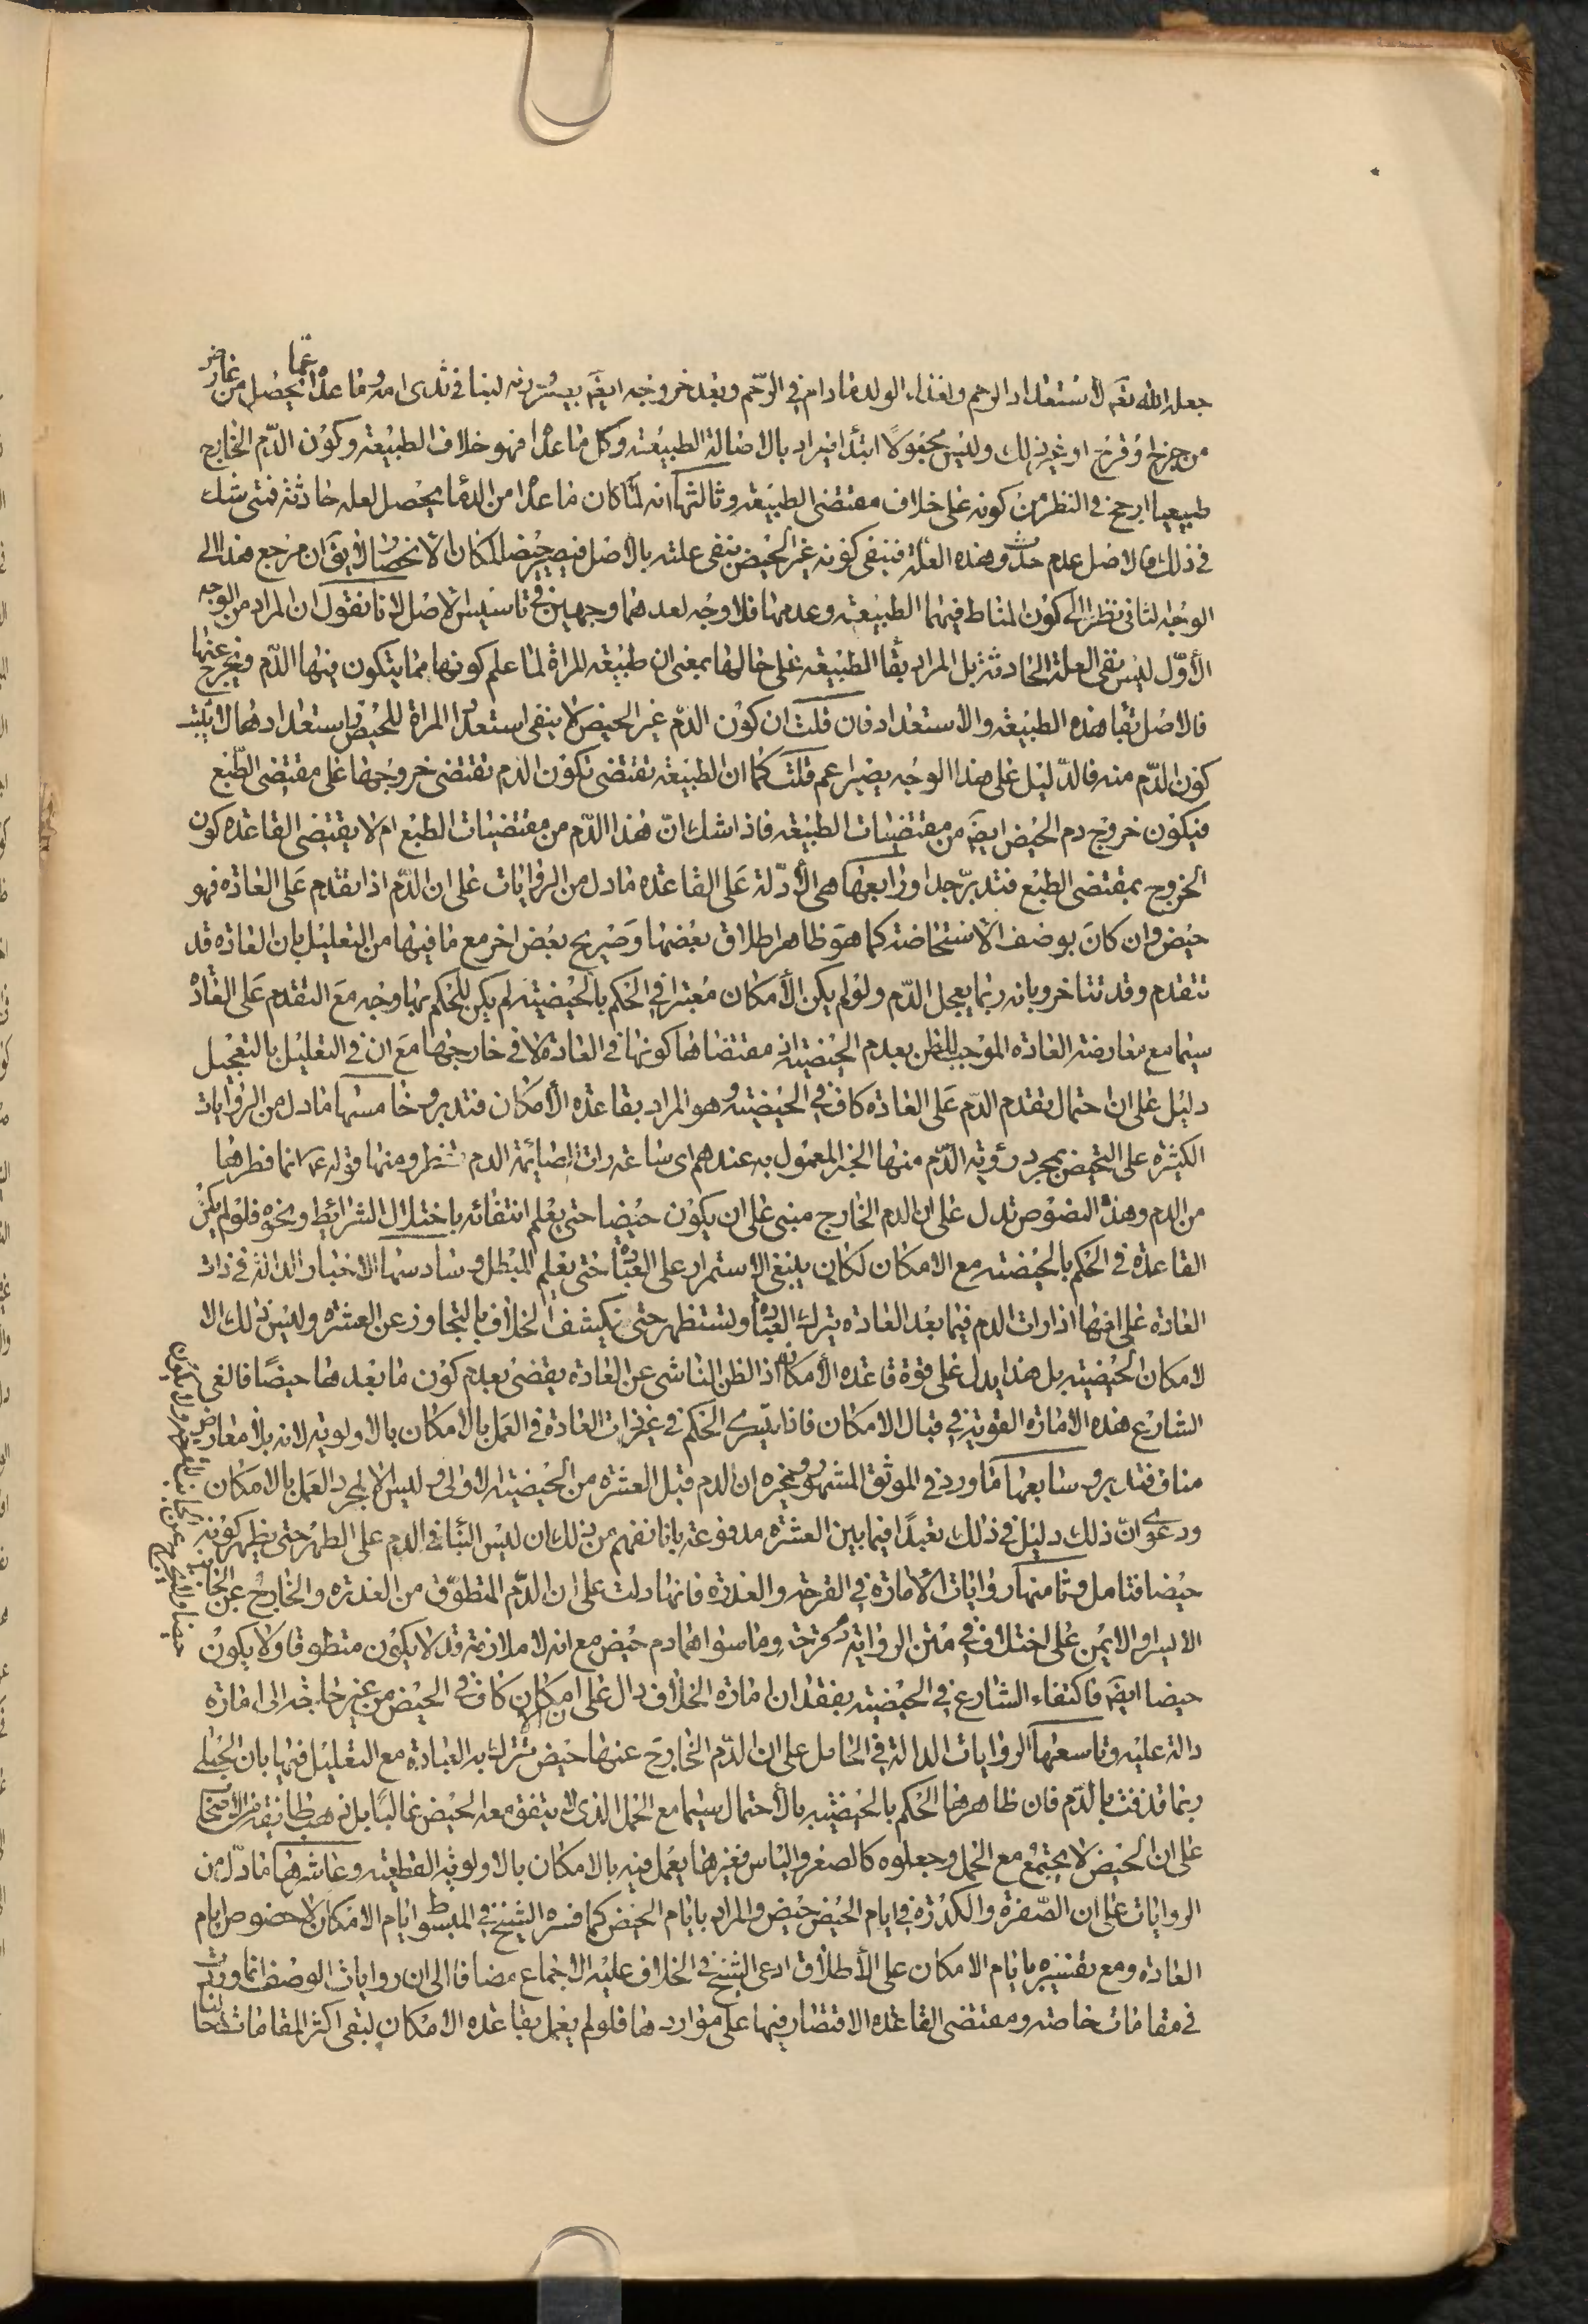 جعله الله تعم لاستعداد الرحم واغذاء الولد مادام فی الرحم وبعد خروجه ایضم یعسره لبنا فی ثدی امه وما عدا مما یحصل من عارض
من جرح او قرح او غیر ذلك ولیس مجعولا ابتدا فیراد بالاصالة الطبیعة وکل ما عدا فهو خلاف الطبیعة وکون الدم الخارج
طبیعیا ارجح فی النظر من کونه علی خلاف مقتضی الطبیعة وثالثها انه لما کان ما عدا من الدما یحصل لعلة حادثة فمتی شك
فی ذلك فالاصل عدم حدوث هذه العلة فینفی کونه غیر الحیض بنفی علته بالاصل فیصیر حیضا لمکان الانحصار لا یق ان مرجع هذا الی
الوجه الثانی نظرا الی کون المناط فیهما الطبیعة وعدمها فلا وجه لعدهما وجهین فی تاسیس الاصل لانا نقول ان المراد من الوجه
الأول لیس نفی العلة الحادثة بل المراد بقا الطبیعة علی حالها بمعنی ان طبیعة المراة لما علم کونها مما یتکون فیها الدم ویخرج عنها
فالاصل بقا هذه الطبیعة والاستعداد فان قلت ان کون الدم غیر الحیض لا ینفی استعداد المراة للحیض واستعدادها لا یثبت
کون الدم منه فالدلیل علی هذا الوجه یصیر اعم قلت کما ان الطبیعة تقتضی تکون الدم تقتضی خروجها علی مقتضی الطبع
فیکون خروج دم الحیض ایضم من مقتضیات الطبیعة فاذا شك ان هذا الدم من مقتضیات الطبع ام لا یقتضی القاعده کون
الخروج بمقتضی الطبع فتدبر جدا ورابعها هی الأدلة علی القاعده ما دل من الروایات علی ان الدم اذا تقدم علی العاده فهو
حیض وان کان بوصف الاستحاضة کما هو ظاهر اطلاق بعضها وصریح بعض اخر مع ما فیها من التعلیل بان العاده قد
تتقدم وقد تتاخر وبانه ربما یعجل الدم ولو لم یکن الأمکان معتبرا فی الحکم بالحیضیة لم یکن للحکم بها وجه مع التقدم علی العادة
سیما مع معارضة العاده الموجب للظن بعدم الحیضیة اذ مقتضاها کونها فی العادة لا فی خارجها مع ان فی التعلیل بالتعجیل
دلیل علی ان احتمال تقدم الدم علی العادة کاف فی الحیضیة وهو المراد بقاعده الأمکان فتدبر وخامسها ما دل من الروایات
الکثیرة علی التحیض بمجرد رؤیة الدم منها الخبر المعمول به عندهم ای ساعة رات الصائمة الدم تفطر ومنها قوله ع انما فطرها
من الدم وهذه النصوص تدل علی ان الدم الخارج مبنی علی ان یکون حیضا حتی یعلم انتفائه باختلال الشرائط ونحوه فلو لم یکن
القاعدة فی الحکم بالحیضة مع الامکان لکان ینبغی الاستمرار علی العبادة حتی یعلم المبطل وسادسها الاخبار الدالة فی ذات
العاده علی انها اذا رات الدم فیما بعد العاده تترك العبادة وتستظهر حتی ینکشف الخلاف بالتجاوز عن العشرة ولیس ذلك الا
لامکان الحیضیة بل هذا یدل علی قوة قاعده الأمکان اذ الظن الناشی عن العادة یقضی بعدم کون ما بعدها حیضا فالغی
الشارع هذه الامارة القویة فی قبال الامکان فاذا یتسری الحکم فی غیر ذات العادة فی العمل بالامکان بالاولویة لانه بلا معارض
مناف فتدبر وسابعها ما ورد فی الموثق المشهور وغیره ان الدم قبل العشرة من الحیضیة الاولی ولیس الا لمجرد العمل بالامکان
ودعوی ان ذلك دلیل فی ذلك تعبدا فیما بین العشرة مدفوعة بانا نفهم من ذلك ان لیس البنا فی الدم علی الطهر حتی یظهر کونه
حیضا فتامل وثامنها روایات الامارة فی القرحة والعذرة فانها دلت علی ان الدم المتطوق من العذرة والخارج عن الجانب
الایسر او الایمن علی اختلاف فی متن الروایة دم قرحة وما سواهما دم حیض مع انه لا ملازمة قد لا یکون متطوقا ولا یکون
حیضا ایضم فاکتفاء الشارع فی الحیضیة بفقدان امارة الخلاف دال علی ان الامکان کاف فی الحیض من غیر حاجة الی امارة
دالة علیه وتاسعها الروایات الدالة فی الحامل علی ان الدم الخارج عنها حیض تترك به العبادة مع التعلیل فیها بان الحبلی
ربما قذفت بالدم فان ظاهرها الحکم بالحیضیة بالأحتمال سیما مع الحمل الذی لا یتفق معه الحیض غالبا بل ذهب طائفة من الاصحاب
علی ان الحیض لا یجتمع مع الحمل وجعلوه کالصغر والیاس فغیرها یعمل فیه بالامکان بالاولویة القطعیة وعاشرها ما دل من
الروایات علی ان الصفرة والکدرة فی ایام الحیض حیض والمراد بایام الحیض کما فسره الشیخ فی المبسوط ایام الامکان لا خصوص ایام
العادة ومع تفسیره بایام الامکان علی الأطلاق ادعی الشیخ فی الخلاف علیه الاجماع مضافا الی ان روایات الوصف انما وردت
فی مقامات خاصة ومقتضی القاعدة الاقتصار فیها علی مواردها فلو لم یعمل بقاعده الامکان لبقی اکثر المقامات